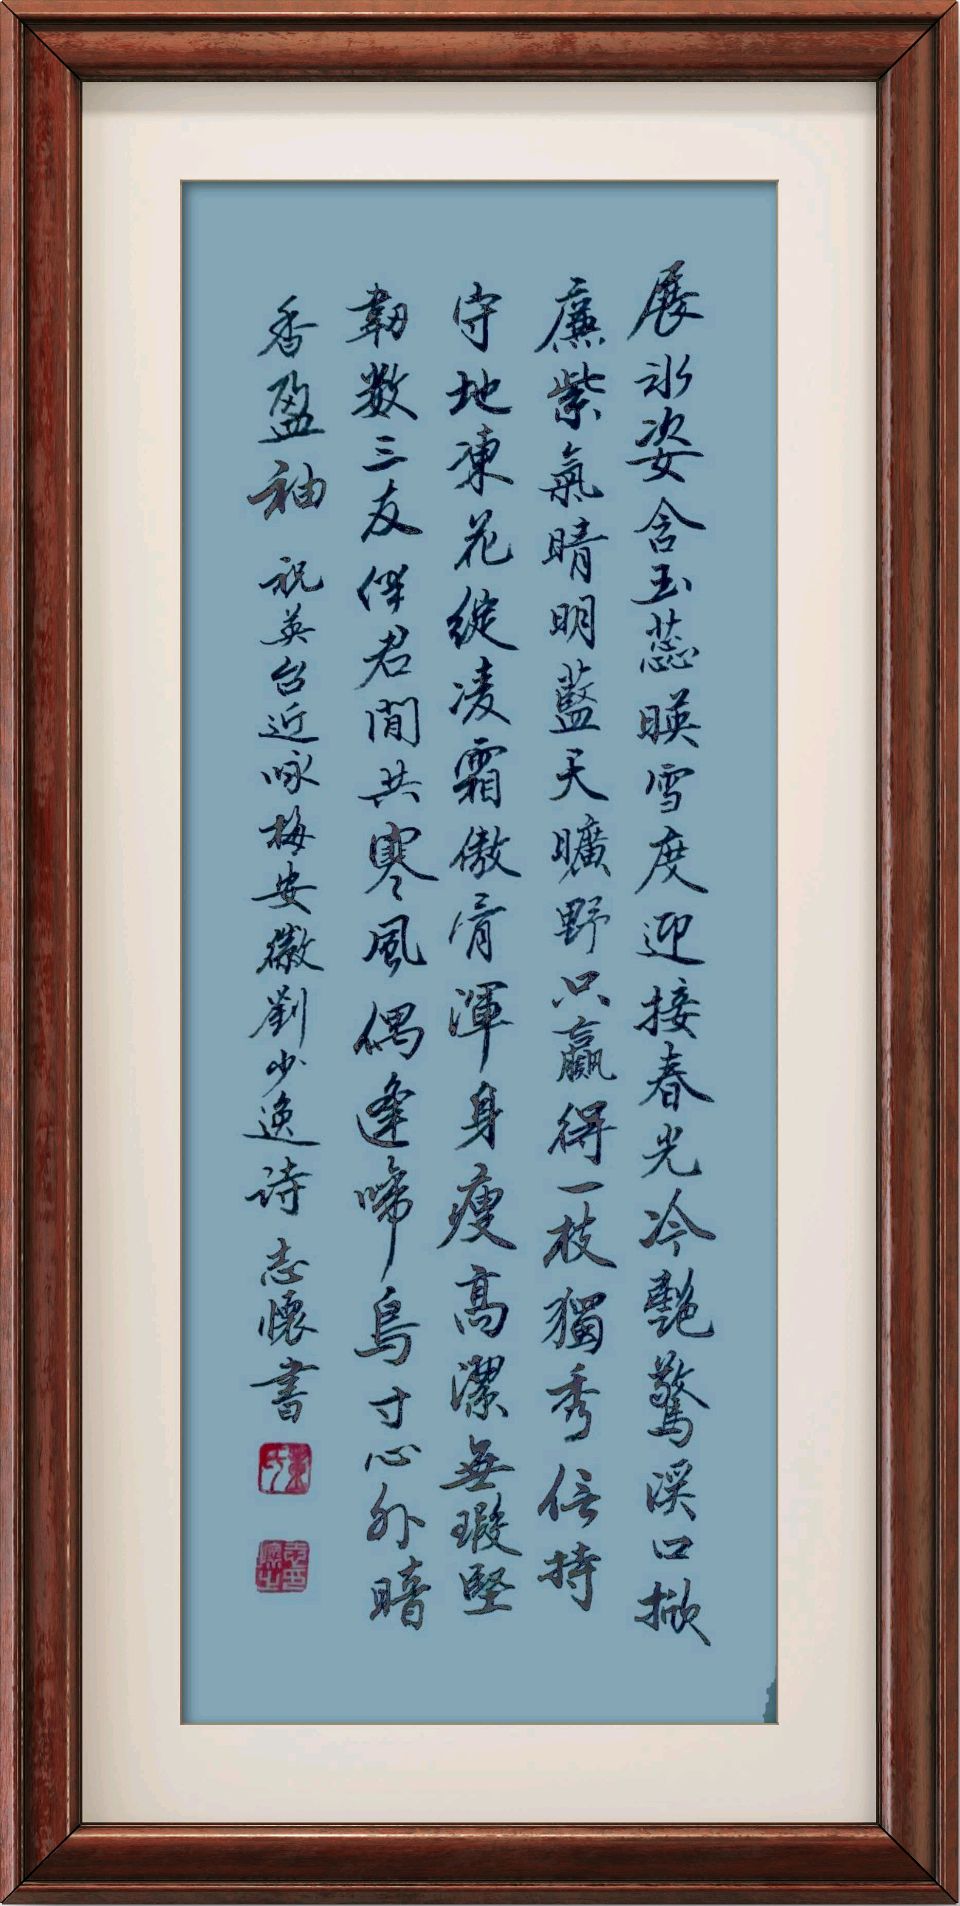 展冰姿含玉蕊暎雪度迎接春光冷艷驚溪口掀
廉紫氣晴明藍天曠野只贏得一枝獨秀信持
守地凍花綻凌霜傲骨渾身瘦高潔無瑕堅
韌数三友伴君閒共寒風偶逢啼鳥寸心外暗
香盈袖 祝英台近咏梅安徽劉少逸詩 志懷書